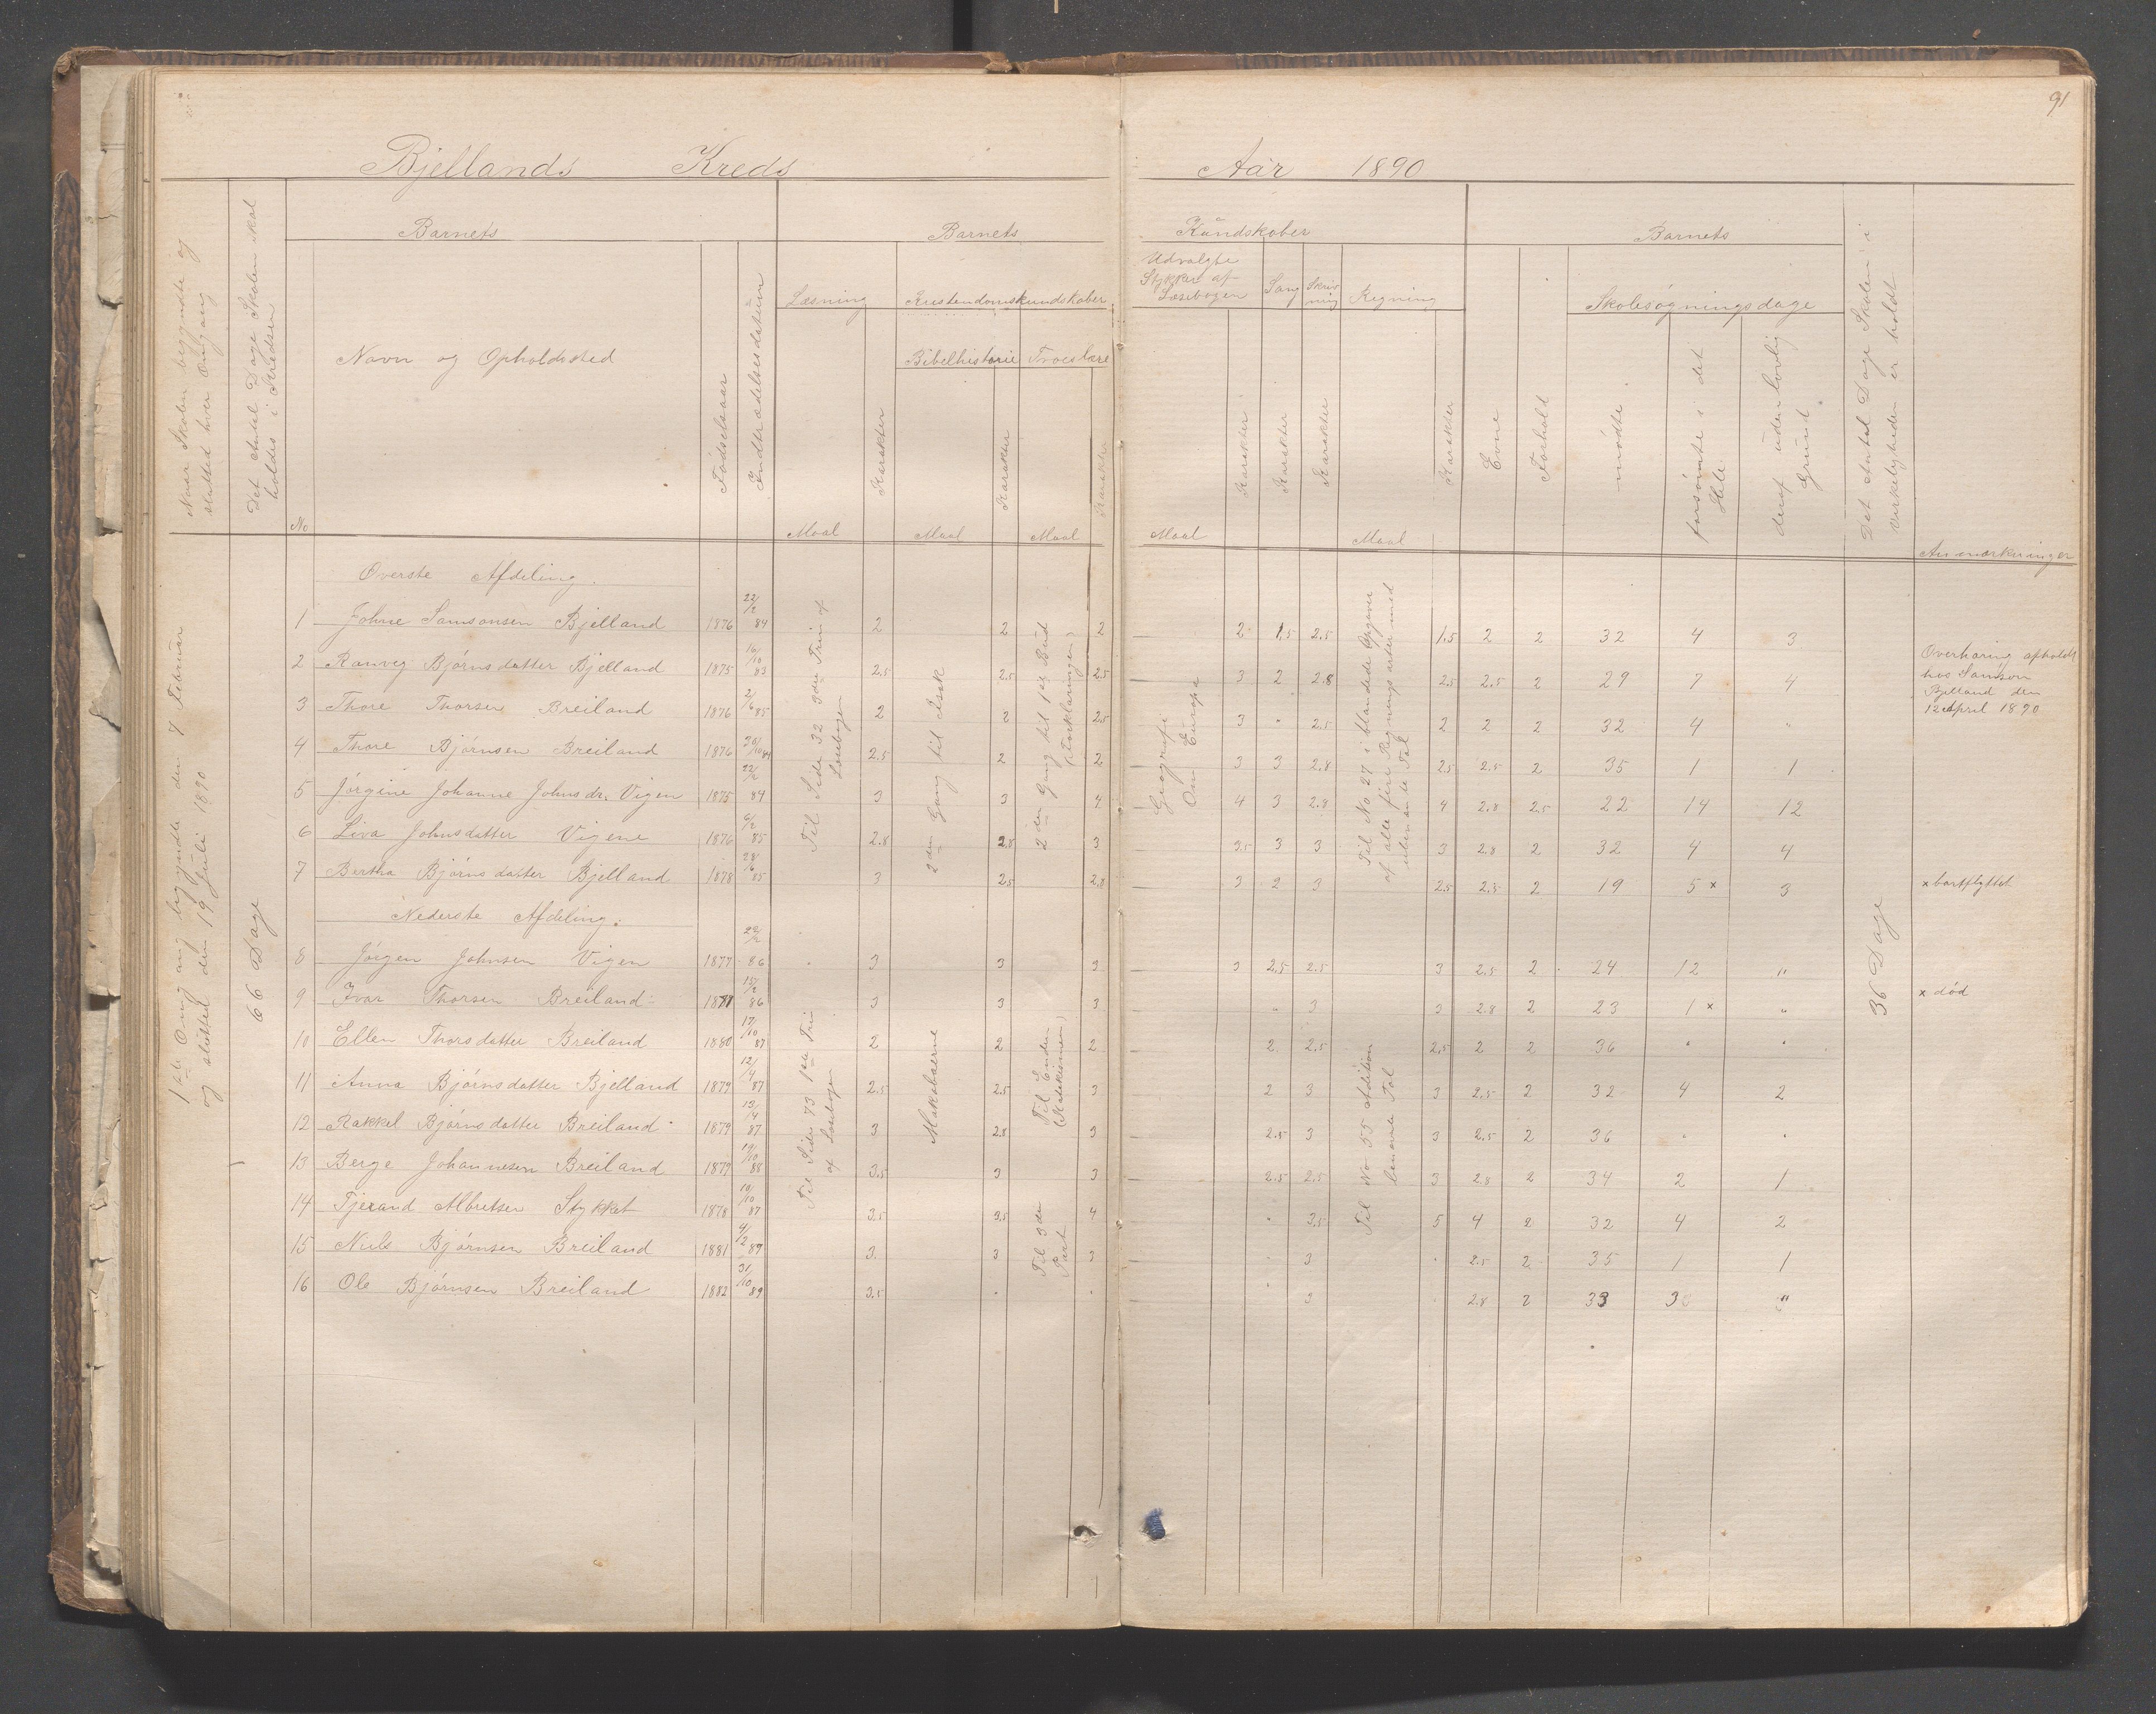 91
Bjellands Kreds Aar 1890
Naar Skolen begyndte og
slutted hver Omgang
Det Antal Dage Skolen skal
holdes i Kredsen
No
Barnets
Navn og Opholdssted
Fødselsaar
Indtrædelsesdatum
Barnets
Læsning
Maal
Karakter
Kristendomskundskaber
Bibelhistorie
Maal
Karakter
Troeslære
Maal
Karakter
Kundskaber
Udvalgte
Stykker af
Læsebogen
Maal
Karakter
Sang
Karakter
Skriv
ning
Karakter
Regning
Maal
Karakter
Barnets
Evne
Forhold
Skolesøgningsdage
mødte
forsømte i det
Hele
deraf uden lovlig
Grund
Det Antal Dage Skolen i
Virkeligheden er holdt
Anmærkninger
1ste Omgang begyndte den 7 Februar
og slutted den 19 Juli 1890
66 Dage
Til Side 32 3die Trin af
Læsebogen
2den Gang til Isak
2den Gang til 1ste Bud
(Forklaringen)
Geografi
Om Europa
Til No 27 i blandede Opgaver
af alle fire Regningsarter med
ubenævnte Tal
36 Dage
Øverste Afdeling.
1 Johne Samsonsen Bjelland 1876 22/2 84 2 2 2 2 1.5 2.5 1.5 2 2 32 4 3
2 Ranveg Bjørnsdatter Bjelland 1875 16/10 83 2.5 2.5 2.5 3 2 2.8 2.5 2.5 2 29 7 4
Overhøring afholdt
hos Samson
Bjelland den
12 April 1890
3 Thore Thorsen Breiland 1876 2/6 85 2 2 2.5 3 " 2.5 2 2 2 32 4 "
4 Thore Bjørnsen Breiland 1876 30/10 84 2.5 2 2 3 3 2.8 2.5 2.5 2 35 1 1
5 Jørgine Johanne Johnsdr. Vigen 1875 22/2 84 3 3 4 4 3 2.8 4 2.8 2.5 22 14 12
6 Liva Johnsdatter Vigene 1876 6/2 85 2.8 2.8 3 3.5 3 3 3 2.8 2 32 4 4
7 Bertha Bjørnsdatter Bjelland 1878 28/6 85 3 2.5 2.8 3 2 3 2.5 2.5 2 19 5 x 3 x bortflyttet
Nederste Afdeling.
Til Side 73 1ste Trin
af Læsebogen
Makabæerne
Til Enden
(Katekismen)
Til 3die
Part
Til No 55 Addition
benævnte Tal
8 Jørgen Johnsen Vigen 1877 22/2 86 3 3 3 3 2.5 2.5 3 2.5 2 24 12 "
9 Ivar Thorsen Breiland 1877 15/2 86 3 3 3 " 3 3 2.8 2 23 1 x " x død
10 Ellen Thorsdatter Breiland 1880 17/10 87 2 2 2 2 2.5 2.5 2 2 36 " "
11 Anna Bjørnsdatter Bjelland 1879 12/4 87 2.5 2.5 3 2 3 3 2.5 2 32 4 2
12 Rakkel Bjørnsdatter Breiland 1879 13/4 87 3 2.8 3 2.5 3 3 2.5 2 36 " "
13 Berge Johannesen Breiland 1879 19/10 88 3.5 3 3 2.5 2.5 3 2.8 2 34 2 1
14 Tjerand Albretsen Stykket 1878 10/10 87 3.5 3.5 4 " 3.5 5 4 2 32 4 2
15 Niels Bjørnsen Breiland 1881 4/2 89 3. 3 3 " 3 " 2.5 2 35 1 1
16 Ole Bjørnsen Breiland 1882 31/10 89 3.5 " " " 3 " 2.8 2 33 3 "